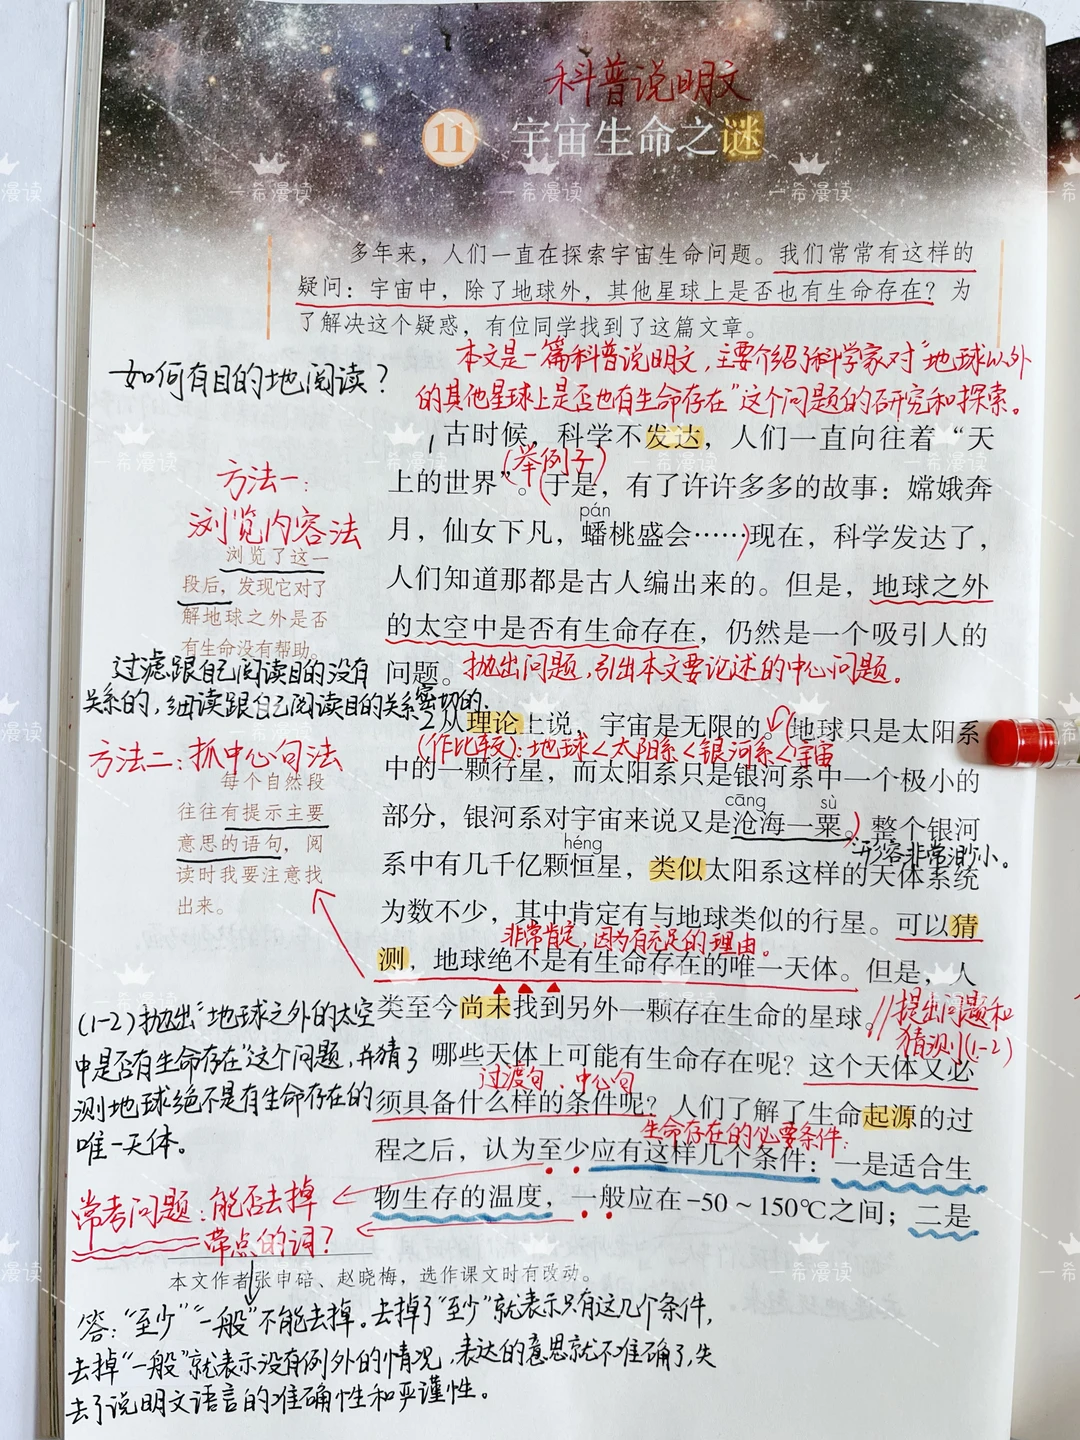 科普说明文
11 宇宙生命之谜
多年来，人们一直在探索宇宙生命问题。我们常常有这样的
疑问：宇宙中，除了地球外，其他星球上是否也有生命存在？为
了解决这个疑惑，有位同学找到了这篇文章。
本文是一篇科普说明文，主要介绍了科学家对“地球以外
的其他星球上是否也有生命存在”这个问题的研究和探索。
如何有目的地阅读？
1 古时候，科学不发达，人们一直向往着“天
(举例子)
上的世界”。(于是，有了许许多多的故事：嫦娥奔
pán
月，仙女下凡，蟠桃盛会……)现在，科学发达了，
人们知道那都是古人编出来的。但是，地球之外
的太空中是否有生命存在，仍然是一个吸引人的
问题。抛出问题，引出本文要论述的中心问题。
方法一：
浏览内容法
浏览了这一
段后，发现它对了
解地球之外是否
有生命没有帮助。
过滤跟自己阅读目的没有
关系的，细读跟自己阅读目的关系密切的。
2 从理论上说，宇宙是无限的。(地球只是太阳系
(作比较)：地球<太阳系<银河系<宇宙
中的一颗行星，而太阳系只是银河系中一个极小的
cāng sù
部分，银河系对宇宙来说又是沧海一粟。)整个银河
形容非常渺小。
héng
系中有几千亿颗恒星，类似太阳系这样的天体系统
为数不少，其中肯定有与地球类似的行星。可以猜
非常肯定，因为有充足的理由。
测，地球绝不是有生命存在的唯一天体。但是，人
类至今尚未找到另外一颗存在生命的星球。//提出问题和
猜测(1-2)
方法二：抓中心句法
每个自然段
往往有提示主要
意思的语句，阅
读时我要注意找
出来。
(1-2)抛出“地球之外的太空
中是否有生命存在”这个问题，并猜
测地球绝不是有生命存在的
唯一天体。
3 哪些天体上可能有生命存在呢？这个天体又必
过渡句、中心句
须具备什么样的条件呢？人们了解了生命起源的过
生命存在的必要条件：
程之后，认为至少应有这样几个条件：一是适合生
物生存的温度，一般应在-50～150℃之间；二是
常考问题：能否去掉
带点的词？
本文作者张申碚、赵晓梅，选作课文时有改动。
答：“至少”“一般”不能去掉。去掉了“至少”就表示只有这几个条件，
去掉“一般”就表示没有例外的情况，表达的意思就不准确了，失
去了说明文语言的准确性和严谨性。
一希漫读